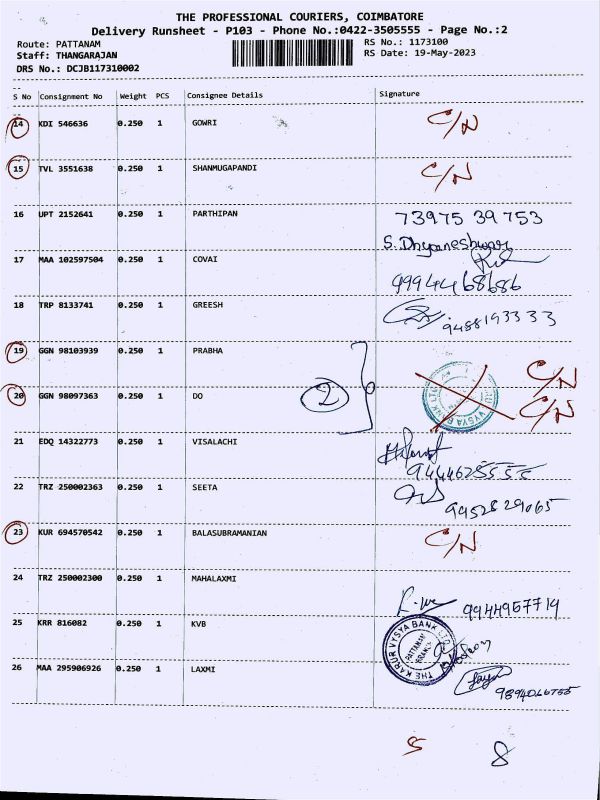 THE PROFESSIONAL COURIERS, COIMBATORE
Delivery Runsheet - P103 - Phone No.:0422-3505555 - Page No.:2
Route: PATTANAM
RS No.: 1173100
Staff: THANGARAJAN
RS Date: 19-May-2023
DRS No.: DCJB117310002
S No Consignment No Weight PCS Consignee Details Signature
14 KDI 546636 0.250 1 GOWRI C/N
15 TVL 3551638 0.250 1 SHANMUGAPANDI C/N
16 UPT 2152641 0.250 1 PARTHIPAN 73975 39753
S. Dhyaneshwar
17 MAA 102597504 0.250 1 COVAI
9994468686
18 TRP 8133741 0.250 1 GREESH 9488193333
19 GGN 98103939 0.250 1 PRABHA C/N
2
20 GGN 98097363 0.250 1 DO C/N
VYSYA BANK LTD
21 EDQ 14322773 0.250 1 VISALACHI
9444625555
22 TRZ 250002363 0.250 1 SEETA
9952829065
23 KUR 694570542 0.250 1 BALASUBRAMANIAN C/N
24 TRZ 250002300 0.250 1 MAHALAXMI
9944957714
25 KRR 816082 0.250 1 KVB
THE KARUR VYSYA BANK LTD
PATTANAM
BRANCH
26 MAA 295906926 0.250 1 LAXMI
5 8